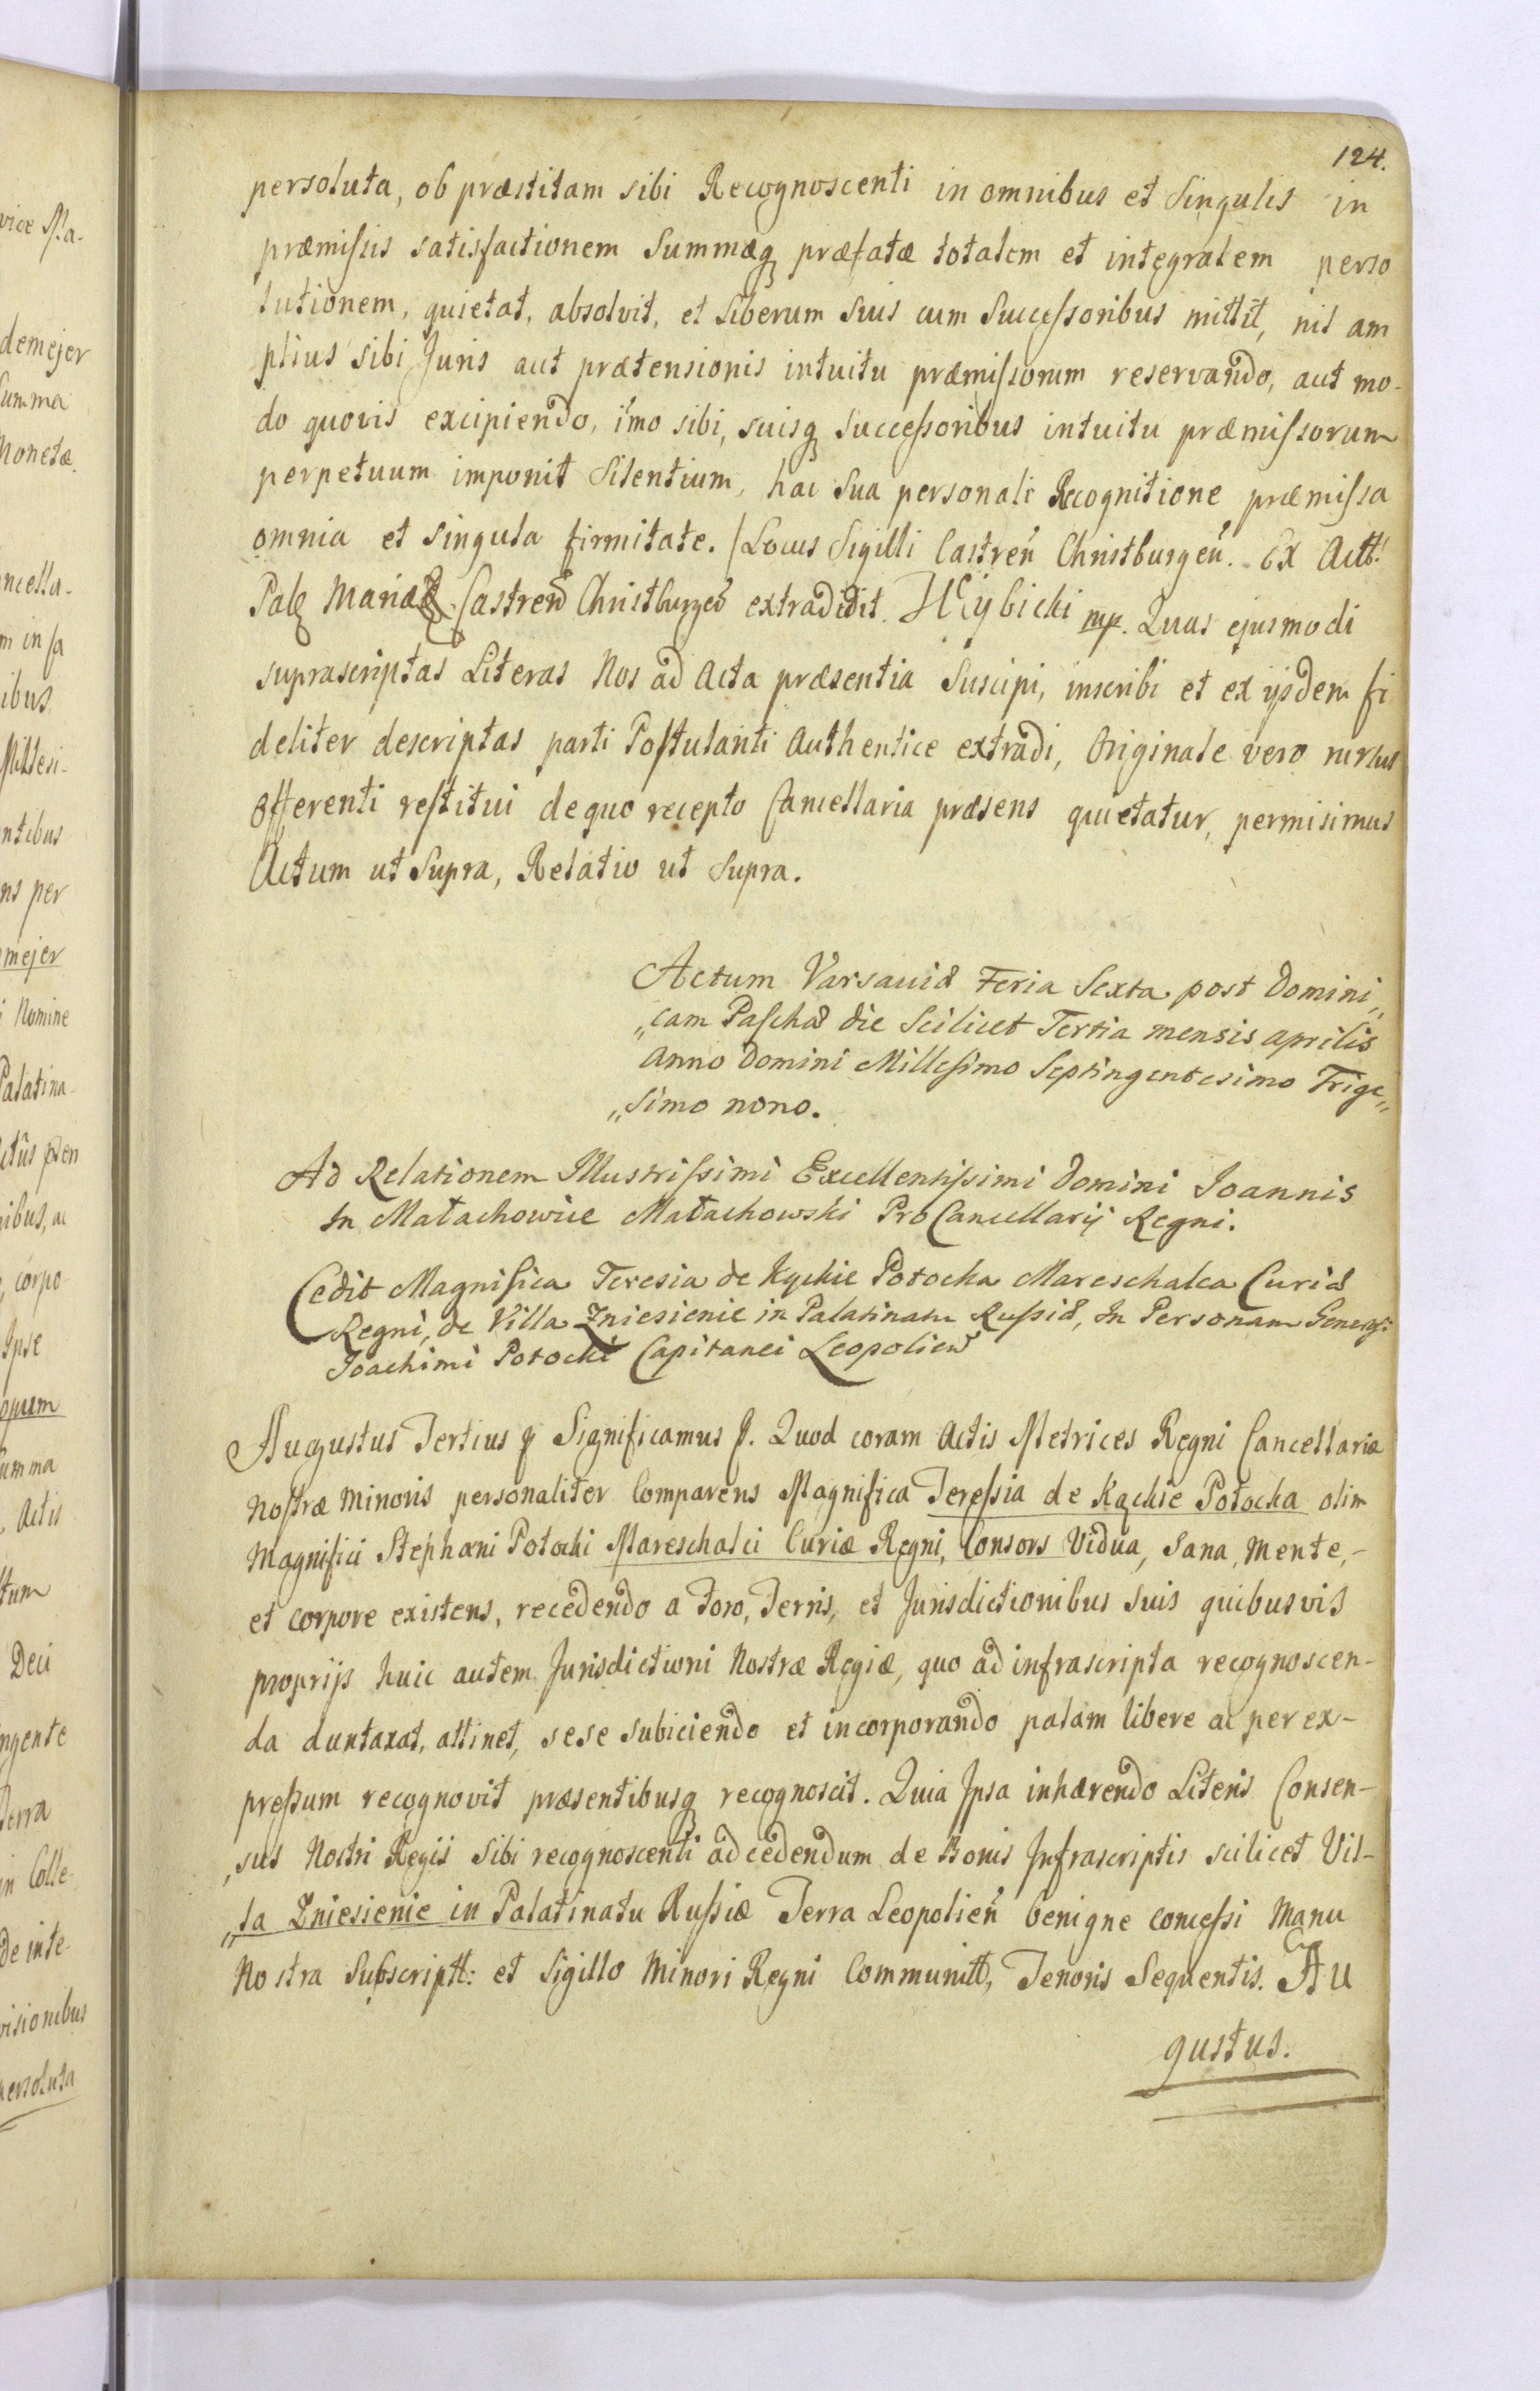 124.
persoluta, ob præstitam sibi Recognoscenti in omnibus et Singulis in
præmissis satisfactionem Summæq præfatæ totalem et integralem perso
lutionem, quietat, absolvit, et Liberum Suis cum Successoribus mittit, nil am
plius sibi Juris aut prætensionis intuitu præmissorum reservando, aut mo-
do quovis excipiendo, imo sibi, suisq Successoribus intuitu præmissorum
perpetuum imponit Silentium, hac Sua personali Recognitione præmissa
omnia et singula firmitate. /Locus Sigilli Castren Christburgen. Ex Actt:
Castren Christburgen extradidit. mp. Quas ejusmodi
suprascriptas Literas Nos ad Acta præsentia Suscipi, inscribi et ex ijsdem fi
deliter descriptas parti Postulanti Authentice extradi, Originale vero rursus
Offerenti restitui de quo recepto Cancellaria præsens quietatur, permisimus
Actum ut Supra, Relatio ut Supra.
Actum Varsaviæ Feria Sexta post Domini„
„cam Paschæ die Scilicet Tertia mensis aprilis
Anno Domini Millesimo Septingentesimo Trige„
„simo nono.
Ad Relationem Illustrissimi Excellentissimi Domini Joannis
In Małachowice Małachowski ProCancellarij Regni.
Cedit Magnifica Teresia de Kąckie Potocka Mareschalca Curiæ
Regni, de Villa Zniesienie in Palatinatu Russiæ, In Personam Generosi
Joachimi Potocki Capitanei Leopolien
Augustus Tertius Significamus. Quod coram Actis Metrices Regni Cancellariæ
Nostræ Minoris personaliter Comparens Magnifica Teressia de Kąckie Potocka olim
Magnifici Stephani Potocki Mareschalci Curiæ Regni, Consors Vidua, Sana, Mente,-
et corpore existens, recedendo a Foro, Terris, et Jurisdictionibus Suis quibusvis
proprijs huic autem Jurisdictioni Nostræ Regiæ, quo ad infrascripta recognoscen-
da duntaxat, attinet, sese subiciendo et incorporando palam libere ac per ex-
pressum recognovit præsentibusq recognoscit. Quia Ipsa inhærendo Literis Consen-
„sus Nostri Regii Sibi recognoscenti ad cedendum de Bonis Infrascriptis scilicet Vil-
„la Zniesienie in Palatinatu Russiæ Terra Leopolien benigne concessi Manu
Nostra Subscriptt: et Sigillo Minori Regni Communitt, Tenoris Sequentis. Au
gustus.